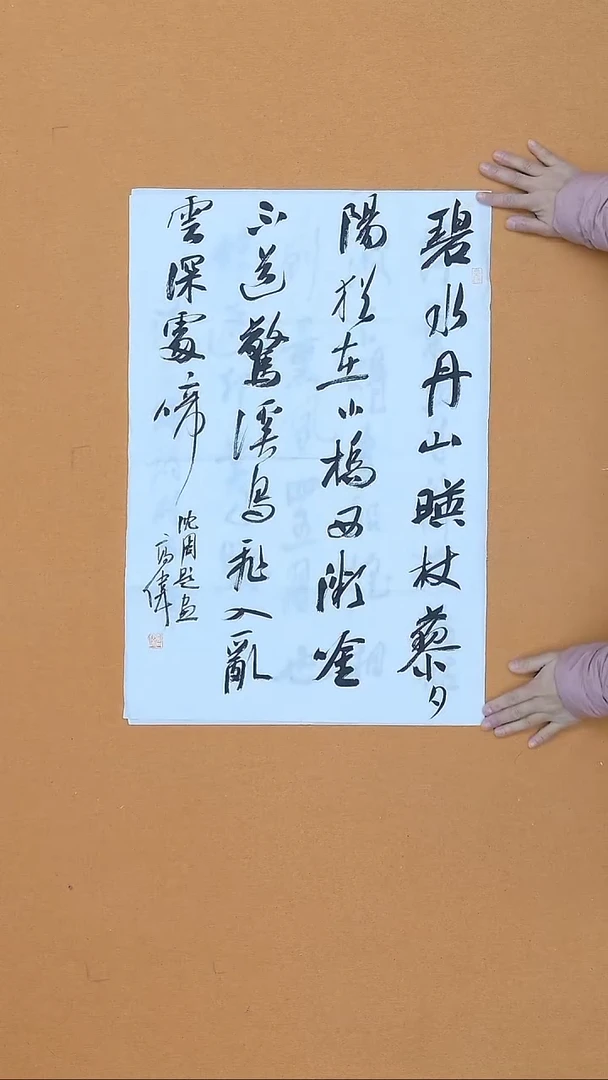 碧水丹山暎杖藜夕
陽猶在小橋西微吟
不道驚溪鳥飛入亂
雲深處啼
沈周題畫
高偉